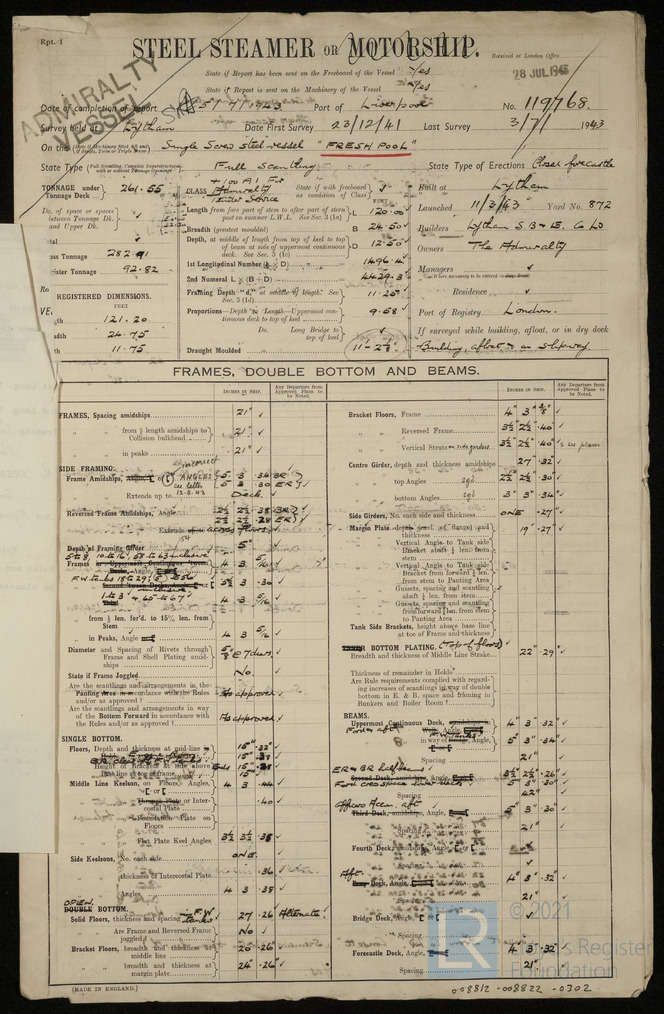 Rpt. 1
STEEL STEAMER OR MOTORSHIP.
Received at London Office
ADMIRALTY
VESSEL
State if Report has been sent on the Freeboard of the Vessel Yes
State if Report is sent on the Machinery of the Vessel Yes
28 JUL 1943
Date of completion of report 5/7/1943 Port of Liverpool No. 119768.
Survey held at Lytham Date First Survey 23/12/41 Last Survey 3/7/ 1943
On the Single Screw Steel vessel "FRESHPOOL"
State Type Full Scantling State Type of Erections Closed forecastle
TONNAGE under Tonnage Deck 261.55
CLASS +100 A1 For Admiralty Service
State if with freeboard as condition of Class
Length from fore part of stem to after part of stern post on summer L.W.L. See Sec. 3 (1a) L 120.00
Breadth (greatest moulded) B 24.50
Depth, at middle of length from top of keel to top of beam at side of uppermost continuous deck. See Sec. 3 (1c) D 12.50
1st Longitudinal Number 1496.4
2nd Numeral L × (B + D) 4429.3
Framing Depth "d," at middle of length. See Sec. 3 (1d) 11.25
Proportions—Depth to Length—Uppermost continuous deck to top of keel 9.58
Do. Long Bridge to top of keel
Draught Moulded 11'-2⅞"
Do. of space or spaces between Tonnage Dk. and Upper Dk.
282.91
92.82
REGISTERED DIMENSIONS.
FEET
121.20
24.75
11.75
Built at Lytham
Launched 11/3/43 Yard No. 872
Builders Lytham S.B & E. Co Ld
Owners The Admiralty
Managers
Residence
Port of Registry London.
If surveyed while building, afloat, or in dry dock
Building, afloat & on slipway.
FRAMES, DOUBLE BOTTOM AND BEAMS.
INCHES IN SHIP.
Any Departure from Approved Plans to be Noted.
INCHES IN SHIP.
Any Departure from Approved Plans to be Noted.
FRAMES, Spacing amidships 21"
" " from ⅗ length amidships to Collision bulkhead 21"
" " in peaks 21"
SIDE FRAMING.
Frame Amidships, ANGLES 5 3 .34 BR
5 3 .30 ER
Extends up to Deck.
Reversed Frame Amidships, Angle 2½ 2½ .28 ER
Extends across floors
Depth of Framing Girder 5"
Frames 4 3 5/16
3½ 3 .30
4 3 5/16
from ⅗ len. for'd. to 15% len. from Stem
" in Peaks, Angle 4 3 5/16
Diameter and Spacing of Rivets through Frame and Shell Plating amidships ⅝" @ 7 diars.
State if Frame Joggled No
Are the scantlings and arrangements in the Panting Area in accordance with the Rules and/or as approved? As approved
Are the scantlings and arrangements in way of the Bottom Forward in accordance with the Rules and/or as approved? As approved
SINGLE BOTTOM.
Floors, Depth and thickness at mid-line 15" .32"
Height of Brackets at side above base line at top of frame
Middle Line Keelson, on Floors, Angles 4 3 .44
" " Through Plate or Intercostal Plate .40
" " Foundation Plate on Floors
" " Flat Plate Keel Angles 3½ 3½ .38
Side Keelsons, No. each side ONE.
" " thickness of Intercostal Plate .36
" " Angles 4 3 .38
OPEN.
DOUBLE BOTTOM.
Solid Floors, thickness and spacing in F.W tanks 27 .26 Alternate
" " Are Frame and Reversed Frame joggled? No
Bracket Floors, breadth and thickness at middle line 20 .26"
" " breadth and thickness at margin plate 24" .26"
Bracket Floors, Frame 4" 3" ⅜"
" " Reversed Frame 3½ 2½ .40
" " Vertical Struts on side girders 3½ 2½ .40
Centre Girder, depth and thickness amidships 27 .32
" " top Angles sgl 2½ 2½ .30
" " bottom Angles sgl 3" 3" .34
Side Girders, No. each side and thickness ONE .27
Margin Plate depth (excl. of flange) and thickness 19" .27
" " Vertical Angle to Tank side Bracket abaft ¼ len. from stem
" " Vertical Angle to Tank side Bracket from forward ¼ len. from stem to Panting Area
" " Gussets, spacing and scantling abaft ¼ len. from stem
" " Gussets, spacing and scantling from forward ¼ len. from stem to Panting Area
Tank Side Brackets, height above base line at toe of Frame and thickness
INNER BOTTOM PLATING. (Top of floors)
Breadth and thickness of Middle Line Strake 22" .29"
Thickness of remainder in Holds
Are Rule requirements complied with regarding increases of scantlings in way of double bottom in E. & B. space and framing in Bunkers and Boiler Room?
BEAMS.
Uppermost Continuous Deck, 4" 3" .32"
in way of 5" 3" .34
Spacing 21"
ER & BR half beams
Second Deck, amidships, Angle 3½ 2½ .26"
Spacing 42"
Officers Accm. aft
Third Deck, amidships, Angle 5" 3" .30"
Spacing 21"
Fourth Deck, amidships, Angle
Spacing
Aft.
Poop Deck, Angle 4" 3" .32"
Spacing 21"
Bridge Deck, Angle
Spacing
Forecastle Deck, Angle 4" 3" .32"
Spacing 21"
(MADE IN ENGLAND.)
© 2021
Lloyd's Register
Foundation
008812-008822-0302